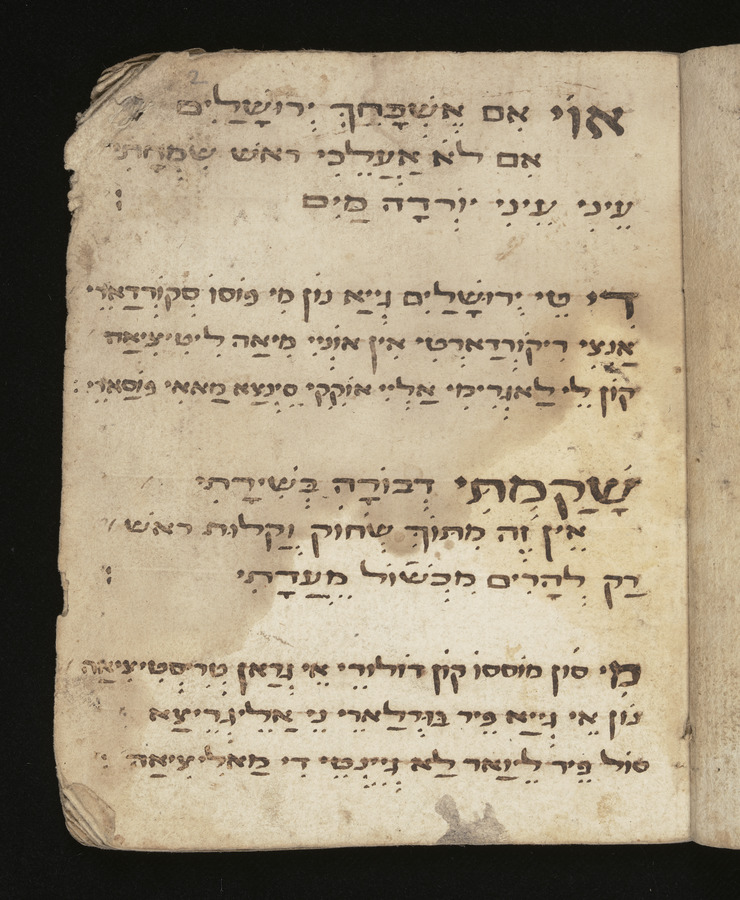 2
אוֹי אִם אֶשְׁכָּחֵךְ יְרוּשָׁלַיִם
אִם לֹא אַעֲלֵכִי ראֹשׁ שִׂמְחָתִי
עֵינִי עֵינִי יוֹרְדָה מַּיִם :
דִי טֵי יְרוּשָׁלַיִם גְיַיא נוֹן מִי פּוֹסוֹ סְקוֹרְדַארֵי
אַנְצִי רִיקוֹרְדַארְטִי אִין אוֹנְיִי מִיאַה לֵיטִיצִיאַה
קוֹן לֵי לַאגְרִימִי אַלְיִי אוֹקְקִי סֵינְצַא מַאאִי פּוֹסַארֵי :
שָׁקַמְתִּי דְבוֹרָה בְּשִׁירָתִי
אֵין זֶה מִתּוֹךְ שְׂחוֹק וְקַלּוּת ראֹשׁ
רַק לְהָרִים מִכְשׁוֹל מֵעֲדָתִי :
מִי סוֹן מוֹסְסוֹ קוֹן דוֹלוֹרֵי אֵי גְרַאן טְרִיסְטִיצִיאַה
נוֹן אֵי גְיַיא פֵּיר בּוּרְלַארֵי נֵי אַלֵיגְרֵיצַא
סוֹל פֵּיר לֵיוַאר לַא גְיֵינְטֵי דִי מַאלִיצִיאַה :